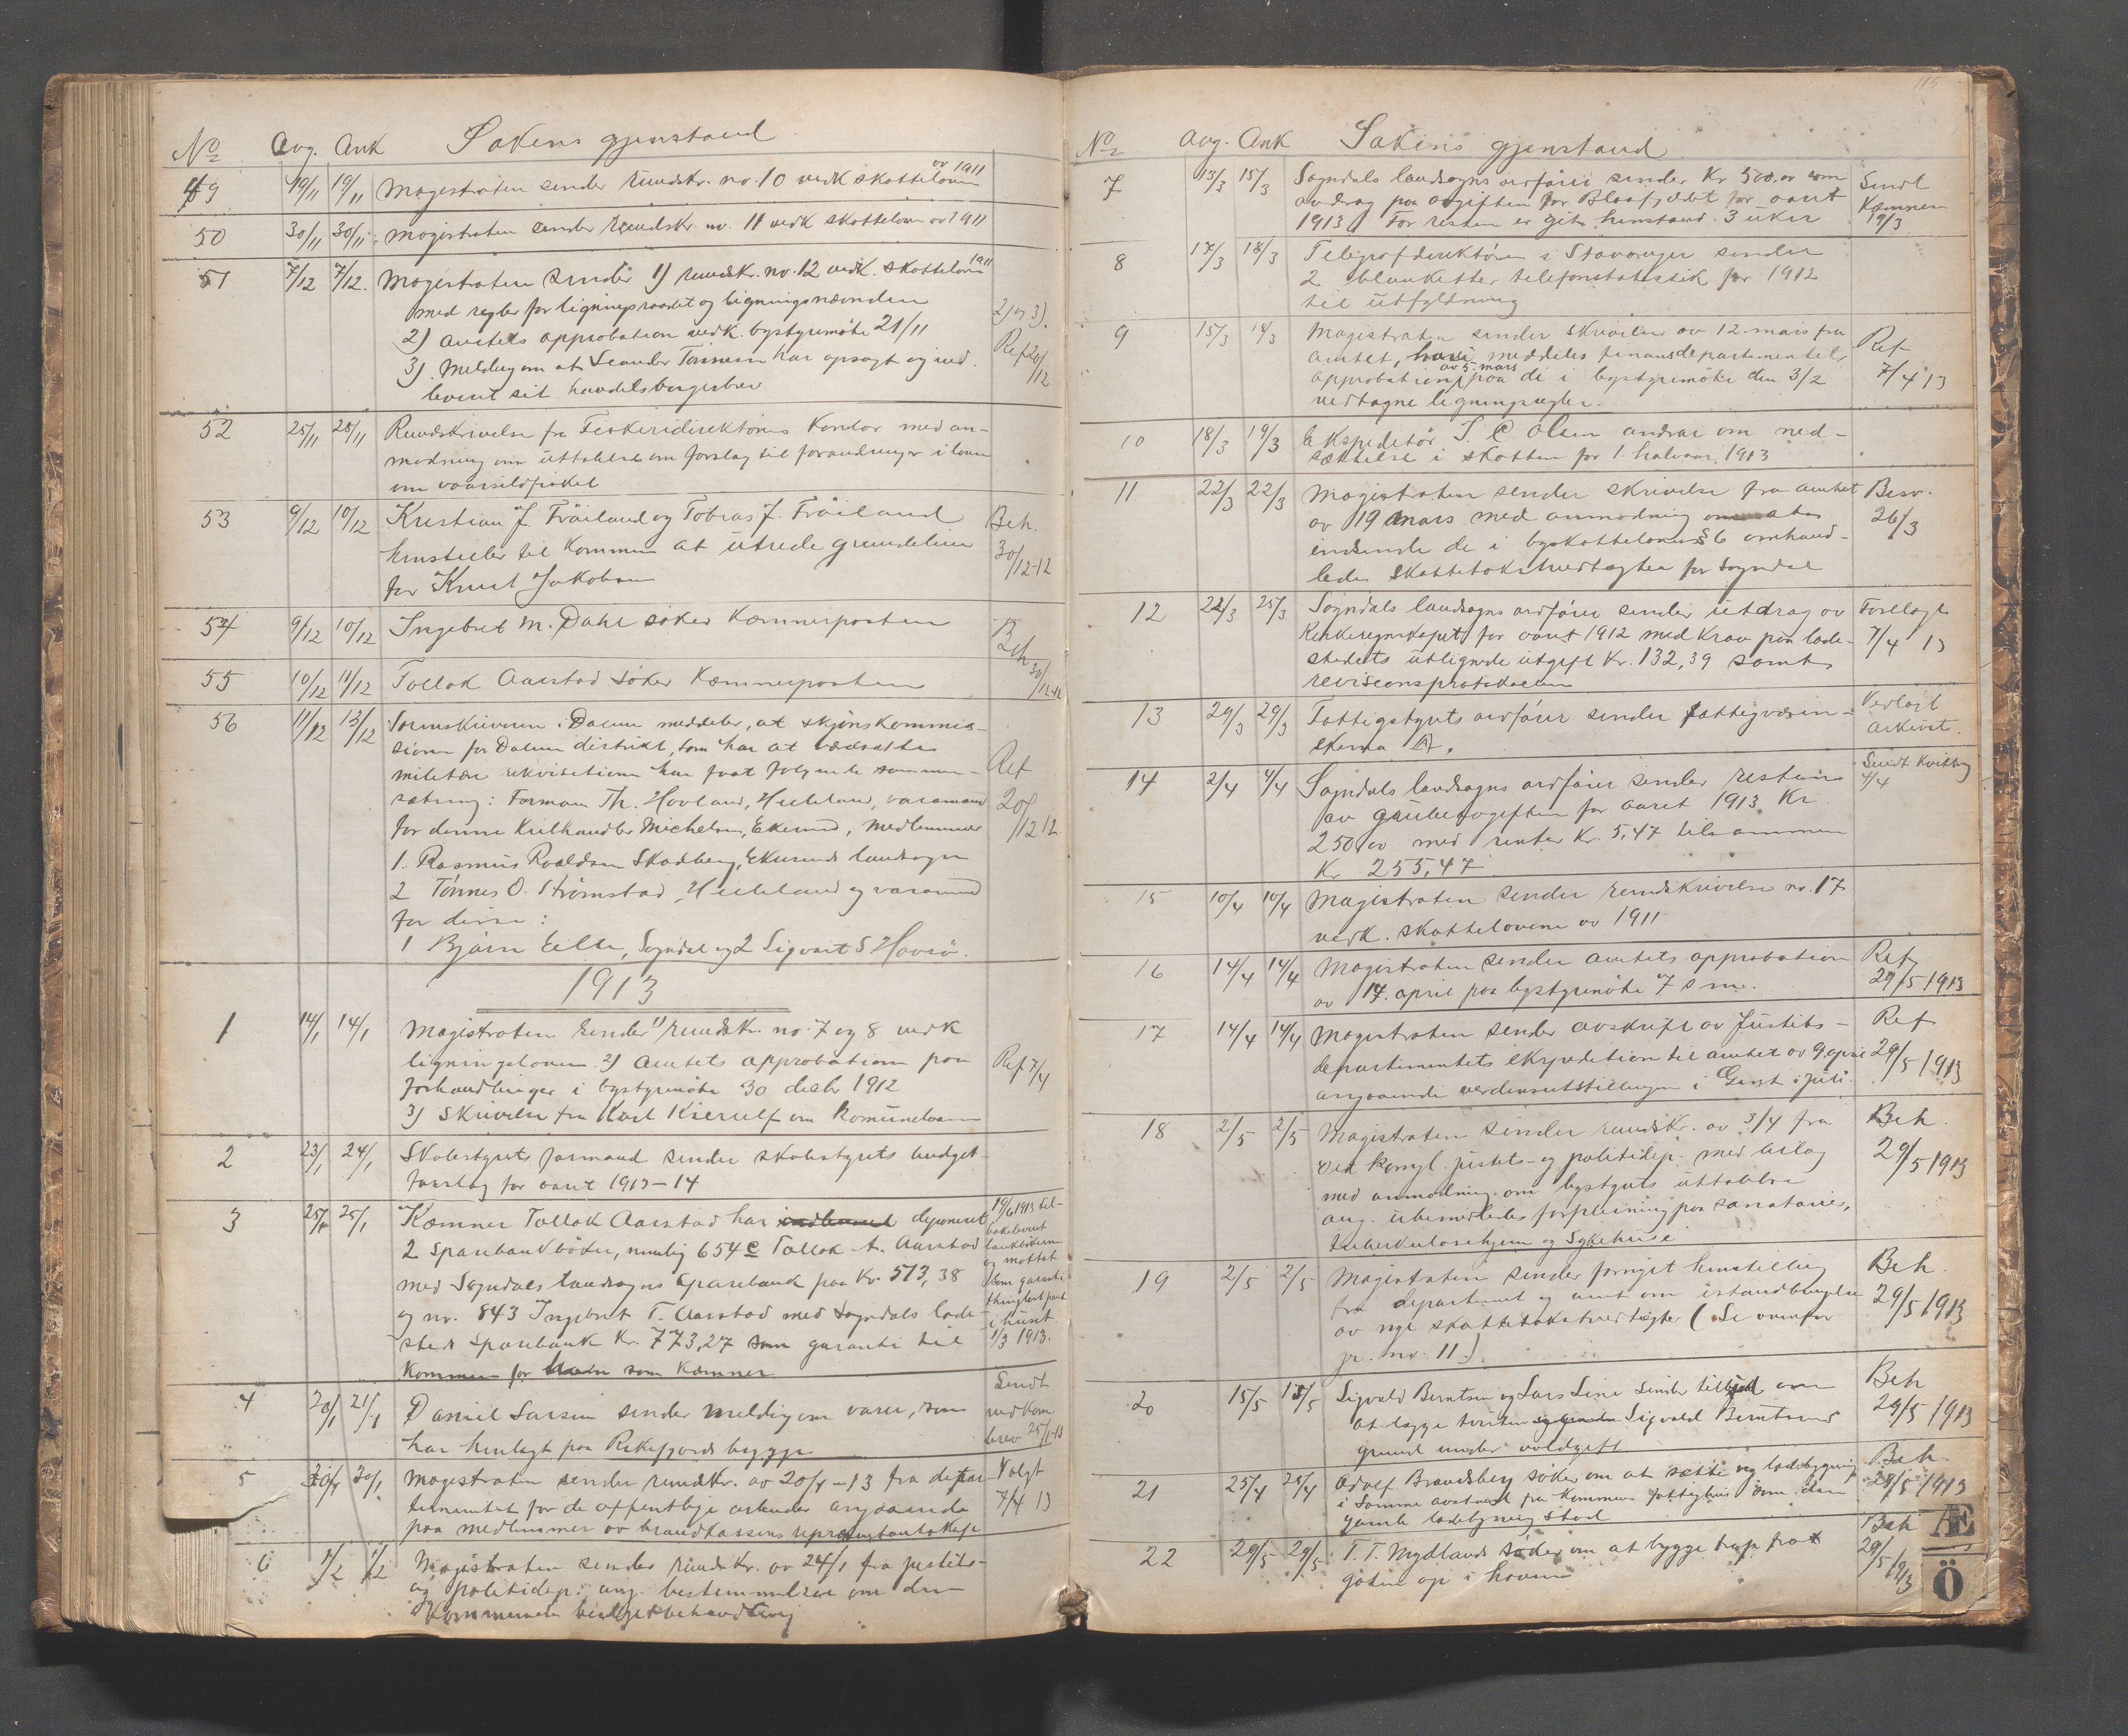 No Avg. Ank Sakens gjenstand
49 19/11 19/11 Magistraten sender rundskr. no. 10 vedk skatteloven av 1911
50 30/11 30/11 Magistraten sender rundskr. no. 11 vedk skatteloven av 1911
51 7/12 7/12. Magistraten sender 1) rundskr. no. 12 vedk. skatteloven 1911
med regler for ligningsraadet og ligningsnævnden
2) Amtets approbation vedk. bystyremöte 21/11
3). Melding om at Leander Tönnesen har opsagt og ind-
levert sit handelsborgerbrev
2) og 3).
Ref 20/12
52 25/11 28/11 Rundskrivelse fra Fiskeridirektörens Kontor med an-
modning om uttalelse om forslag til forandringer i loven
om vaarsildfisket
53 9/12 10/12 Kristian J. Fröiland og Tobias J. Fröiland
henstiller til kommunen at utrede grundleien
for Knut Jakobsen
Beh.
30/12-12
54 9/12 10/12 Ingebret M. Dahl söker kæmnerposten
Beh
55 10/12 11/12 Tollak Aarstad söker Kæmnerposten
30/12-12
56 11/12 13/12 Sorenskriveren i Dalene meddeler, at skjönskommis-
sionen for Dalene distrikt, som har at værdsætte
militære rekvisitioner har faat følgende sammen-
sætning: Formann Th. Hovland, Helleland, varamand
for denne Kulhandler Michelsen, Ekersund, medlemmer
1. Rasmus Roaldsen Skadberg, Ekersunds landsogn
2 Tönnes O. Strömstad, Helleland og varamænd
for disse:
1 Björn Eelte, Sogndal og 2 Sigvart S Hovsö.
Ref
20/12 12
1913
1 14/1 14/1 Magistraten sender 1) rundskr. no. 7 og 8 vedk
ligningsloven 2) Amtets approbation paa
forhandlinger i bystyremöte 30 decbr 1912
3) Skrivelse fra Karl Kierulf om kommuneloven
Ref 7/4
2 23/1 24/1 Skolestyrets formand sender skolestyrets budget-
forslag for aaret 1913-14
3 25/1 25/1 Kæmner Tollak Aarstad har deponeret
2 sparebankböker, nemlig 654 c Tollak T. Aarstad
med Sogndals landsogns Sparebank paa Kr. 513,38
og nr. 843 Ingebret T. Aarstad med Sogndals lade-
steds sparebank Kr. 773,27 som garanti til
Kommunen for ham som Kæmner
19/6 1913 til-
bakelevert
bankbökerne
og mottat
som garanti
thinglest pant
i huset
1/3 1913.
4 20/1 21/1 Daniel Larsen sender melding om varer, som
har henlagt paa Rekefjords brygge
Sendt
ved kom
brev 25/1-13
5 30/1 30/1 Magistraten sender rundskr. av 20/1-13 fra depar-
tementet for de offentlige arbeider angaaende
paa medlemmer av brandkassens representantskap
Valgt
7/4 13
6 1/2 1/2 Magistraten sender rundskr. av 24/1 fra justits-
og politidep. ang. bestemmelser om den
kommunale budgetbehandling
115
No Avg. Ank Sakens gjenstand
7 13/3 15/3 Sogndals landsogns ordförer sender Kr 500.00 som
avdrag paa avgiften for Blaafjeldet for aaret
1913. For resten er git henstand 3 uker
Sendt
Kæmneren
19/3
8 17/3 18/3 Telegrafdirektören i Stavanger sender
2 blanketter telefonstatistik for 1912
til utfyldning
9 15/3 14/3 Magistraten sender skrivelse av 12 mars fra
amtet, hvori meddeles finansdepartementets
approbation av 5. mars paa de i bystyremöte den 3/2
vedtagne ligningsregler.
Ref
7/4 13
10 18/3 19/3 Ekspeditör S. C. Olsen andrar om ned-
sættelse i skatten for 1. halvaar 1913
11 22/3 22/3 Magistraten sender skrivelse fra amtet
av 19 mars med anmodning om at
indsende de i byskattelovens § 6 omhand-
lede skattetakstvedtægter for Sogndal
Besv.
26/3
12 22/3 25/3 Sogndals landsogns ordförer sender utdrag av
Kirkeregnskapet for aaret 1912 med krav paa lade-
stedets utlignede utgift Kr. 132,39 samt
revisionsprotokollen
Forelagt
7/4 13
13 29/3 29/3 Fattigstyrets ordförer sender fattigvæsen-
skema A.
Vedlagt
arkivet.
14 2/4 4/4 Sogndals landsogns ordförer sender resten
av grubeavgiften for aaret 1913 Kr
250.00 med renter Kr. 5,47 tilsammen
Kr 255,47
Sendt Kvittering
4/4
15 10/4 10/4 Magistraten sender rundskrivelse no. 17
vedk. skatteloven av 1911
16 14/4 14/4 Magistraten sender amtets approbation
av 14. april paa bystyremöte 7 s m.
Ref
29/5 1913
17 14/4 14/4 Magistraten sender avskrift av Justits-
departementets ekspedition til amtet av 9. april
angaaende verdensutstillingen i Gent i juli
Ref
29/5 1913
18 2/5 2/5 Magistraten sender rundskr. av 3/4 fra
det kongl. justits- og politidep. med bilag
med anmodning om bystyrets uttalelse
ang. ubemidledes forpleining paa sanatorier,
tuberkulosehjem og Sykehuse
Beh.
29/5 1913
19 2/5 2/5 Magistraten sender fornyet henstilling
fra departement og amt om istandbringelse
av nye skattetakstvedtægter (Se ovenfor
jr. no. 11.).
Beh.
29/5 1913
20 15/5 15/5 Sigvald Berntsen og Lars Line sender tilbud om
at lægge tvisten Sigvald Berntsens
grund under voldgift
Beh
29/5 1913
21 25/4 25/4 Adolf Brandsberg söker om at sætte ny ladebygning
i samme avstand fra Kommunens fattighus som den
gamle ladebygning stod
Beh.
29/5 1913
22 29/5 29/5 T. T. Mydland söker om at bygge trap fra
gaten op i haven
Beh
29/5 1913
Æ
Ö